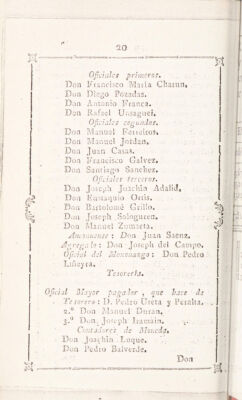 20
Oficiales primeros.
Don Francisco Maria Charun,
Don Diego Pozadas.
Don Antonio Franca.
Don Rafael Unsaguei.
Oficiales segundos.
Don Manuel Ferreiros.
Don Manuel Jordan,
Don Juan Casas.
Don Francisco Galvez.
Don Santiago Sanchez.
Oficiales terceros.
Don Joseph Joachin Adalid,
Don Eustaquio Ortis.
Don Bartolomé Grillo.
Don Joseph Saloguren.
Don Manuel Zumaeta.
Amanuense: Don Juan Saenz.
Agregado: Don Joseph del Campo.
Oficial del Don Pedro
Tesorería.
Oficial Mayor pagador, que hace de
Tesorero: D. Pedro Ureta y Peralta.
2.º Don Manuel Duran.
3.º Don Joseph Iramain.
Contadores de Moneda.
Don Joachin Luque.
Don Pedro Balverde.
Don